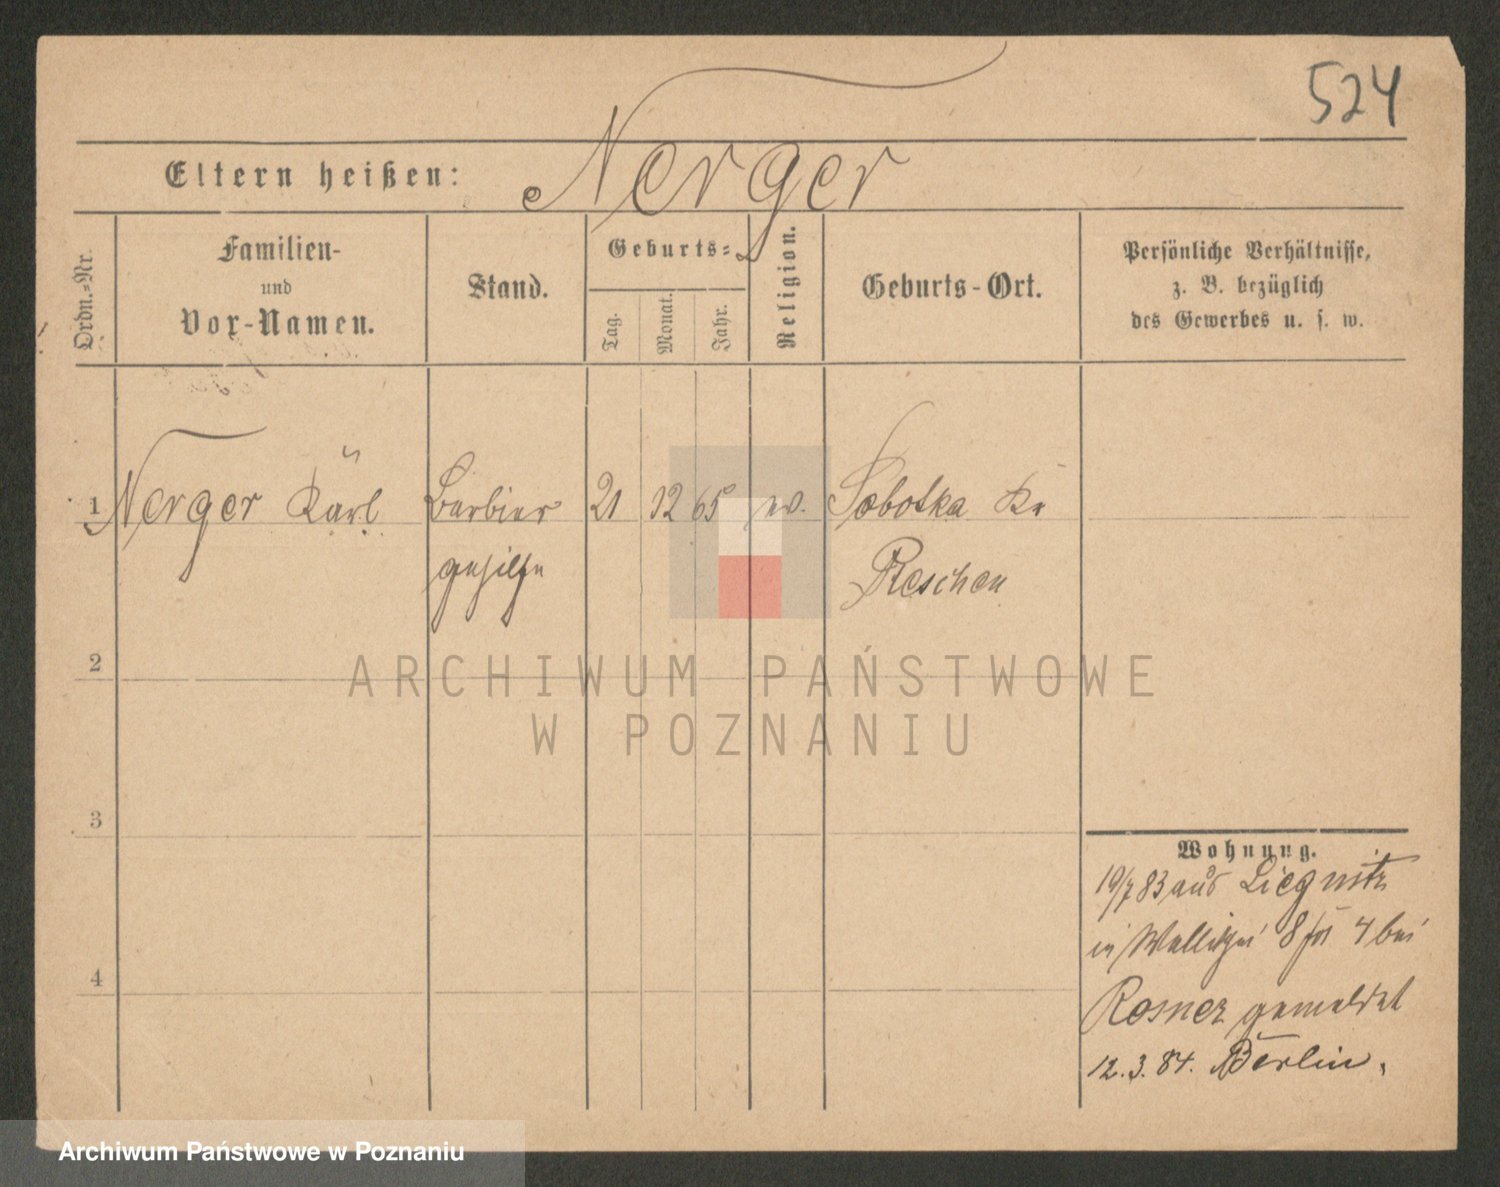 524
Eltern heißen: Nerger
Ordn.-Nr.
Familien-
und
Vor-Namen.
Stand.
Geburts-
Tag.
Monat.
Jahr.
Religion.
Geburts-Ort.
Persönliche Verhältnisse,
z. B. bezüglich
des Gewerbes u. s. w.
1 Nerger Karl Barbier 21 12 65 ev. Sobotka Kr
gehilfe Pleschen
2
3
4
Wohnung.
19/7 83 aus Liegnitz
in 8 4 bei
Rosner gemeldet
12.3.84. Berlin.
ARCHIWUM PAŃSTWOWE
W POZNANIU
Archiwum Państwowe w Poznaniu